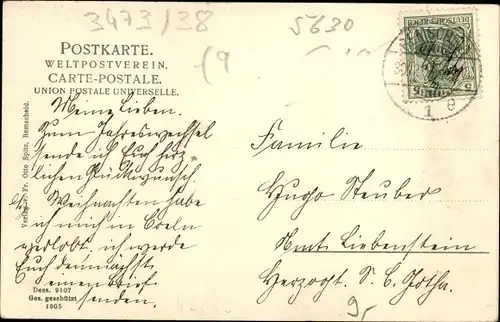 3473/38
5630
(9
POSTKARTE.
WELTPOSTVEREIN.
CARTE-POSTALE.
UNION POSTALE UNIVERSELLE.
DEUTSCHES REICH
5 5
Verlag v. Fr. Otto Spitz, Remscheid.
Meine Lieben.
Zum Jahreswechsel
sende ich Euch herz-
lichen Glückwunsch.
Weihnachten habe
ich mich in Coeln
verlobt. ich werde
Euch demnächst
einen Brief
senden.
Dess. 9107
Ges. geschützt
1905
Familie
Hugo Steuber
Amt Liebenstein
Herzogt. S. C. Gotha.
9,-